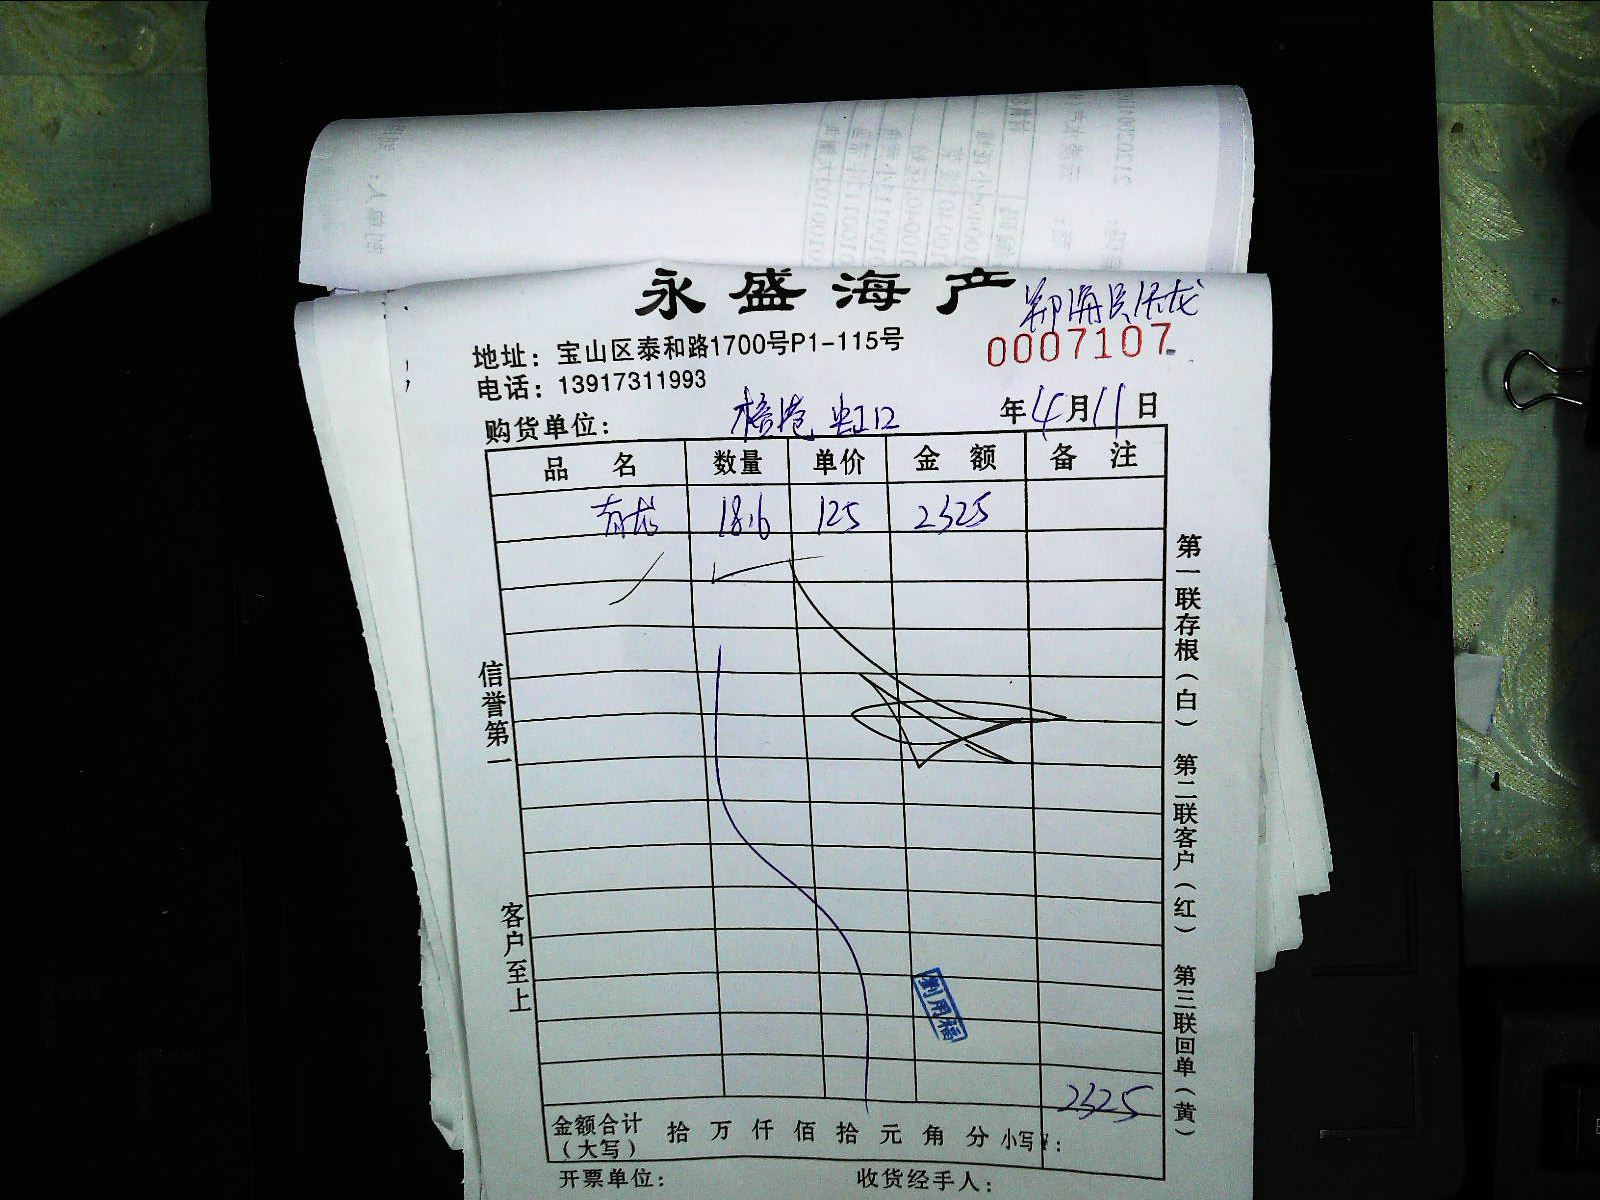 永盛海产
0007107
地址：宝山区泰和路1700号P1-115号
电话：13917311993
购货单位： 虹口 年4月11日
品 名 数量 单价 金 额 备 注
18.6 125 2325
信誉第一 客户至上
第一联存根（白） 第二联客户（红） 第三联回单（黄）
刘用福
2325
金额合计（大写） 拾 万 仟 佰 拾 元 角 分 小写¥：
开票单位： 收货经手人：